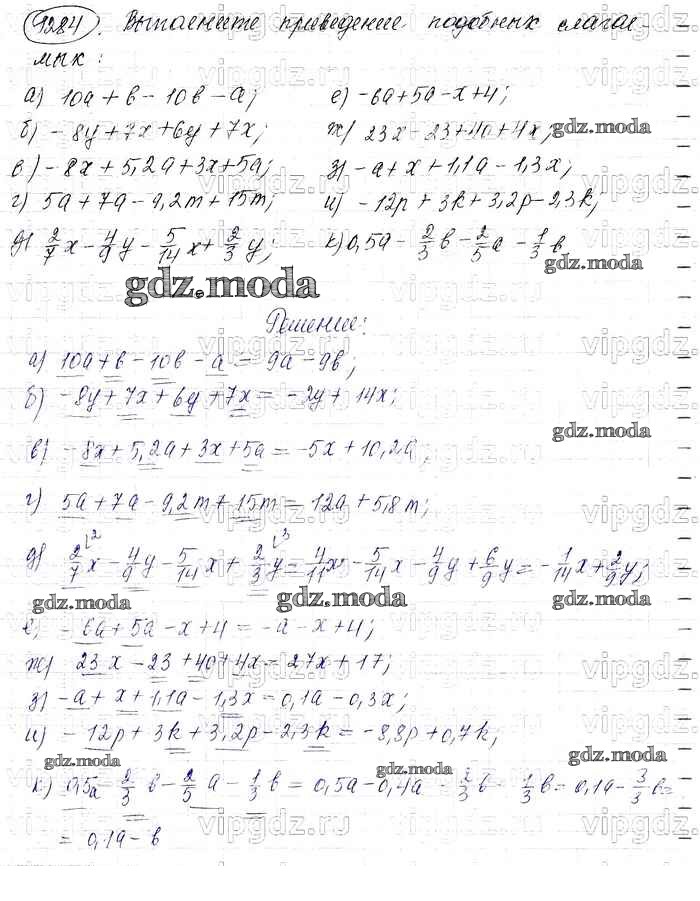 1284. Выполните приведение подобных слагае-
мых:
а) 10a + в - 10в - a;
е) -6a + 5a - x + 4;
б) - 8y + 7x + 6y + 7x;
ж) 23x - 23 + 40 + 4x;
в) - 8x + 5,2a + 3x + 5a;
з) -a + x + 1,1a - 1,3x;
г) 5a + 7a - 9,2m + 15m;
и) -12p + 3k + 3,2p - 2,3k;
д) 2/7 x - 4/9 y - 5/14 x + 2/3 y;
к) 0,5a - 2/3 в - 2/5 a - 1/3 в
gdz.moda
Решение:
а) 10a + в - 10в - a = 9a - 9в;
б) -8y + 7x + 6y + 7x = -2y + 14x;
в) -8x + 5,2a + 3x + 5a = -5x + 10,2a;
г) 5a + 7a - 9,2m + 15m = 12a + 5,8m;
д) 2/7 x - 4/9 y - 5/14 x + 2/3 y = 4/11 x - 5/14 x - 4/9 y + 6/9 y = -1/14 x + 2/9 y;
gdz.moda gdz.moda gdz.moda
е) - 6a + 5a - x + 4 = -a - x + 4;
ж) 23x - 23 + 40 + 4x = 27x + 17;
з) -a + x + 1,1a - 1,3x = 0,1a - 0,3x;
и) -12p + 3k + 3,2p - 2,3k = -8,8p + 0,7k;
gdz.moda gdz.moda gdz.moda
к) 0,5a - 2/3 в - 2/5 a - 1/3 в = 0,5a - 0,4a - 2/3 в - 1/3 в = 0,1a - 3/3 в =
= 0,1a - в